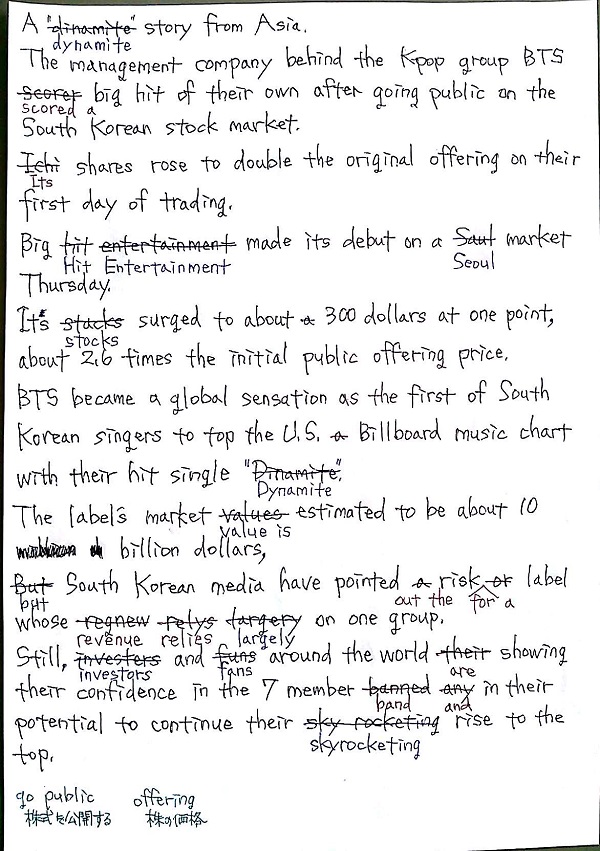 A "dinamite" story from Asia.
dynamite
The management company behind the Kpop group BTS
scorer big hit of their own after going public on the
scored a
South Korean stock market.
Ichi shares rose to double the original offering on their
Its
first day of trading.
Big hit entertainment made its debut on a Saut market
Hit Entertainment Seoul
Thursday.
It's stacks surged to about a 300 dollars at one point,
stocks
about 2.6 times the initial public offering price.
BTS became a global sensation as the first of South
Korean singers to top the U.S. a Billboard music chart
with their hit single "Dinamite".
Dynamite
The label's market values estimated to be about 10
value is
billion dollars,
But South Korean media have pointed a risk or label
but out the for a
whose regnew relys largery on one group.
revenue relies largely
Still, investers and funs around the world their showing
investors fans are
their confidence in the 7 member banned any in their
band and
potential to continue their sky rocketing rise to the
skyrocketing
top.
go public offering
株式を公開する 株の価格